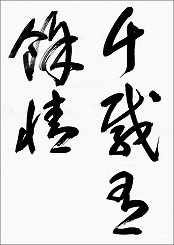 千載有
餘情